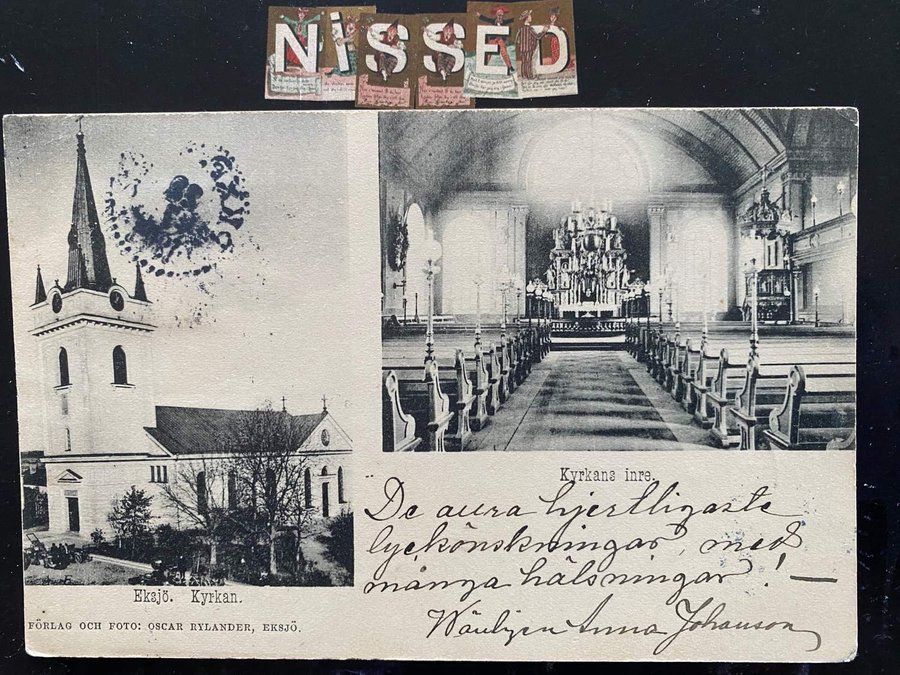 NISSED
Kyrkans inre.
De aura hjertligaste
lyckönskningar, med
många hälsningar! —
Wänligen Anna Johanson
Eksjö. Kyrkan.
FÖRLAG OCH FOTO: OSCAR RYLANDER, EKSJÖ.